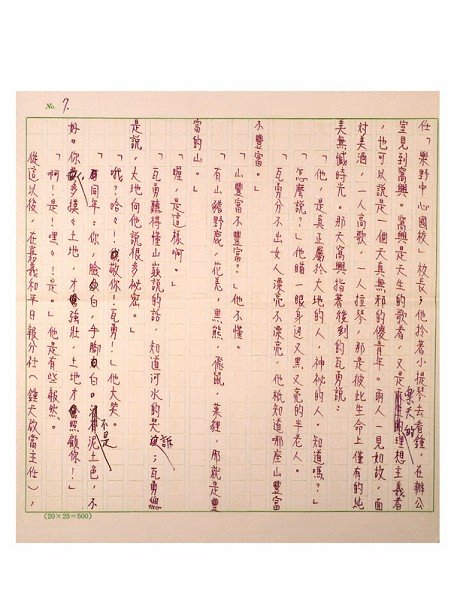 No. 7.
任「樂野中心國校」校長；他拎著小提琴去看鐘，在辦公
室見到窩興。窩興是天生的歌者，又是樂天的理想主義者
，也可以說是一個天真無邪的傻青年。兩人一見如故，面
對美酒，一人高歌，一人拉琴，那是彼此生命上僅有的純
美無憾時光。那天窩興指著後到的瓦勇說：
「他，是真正屬於大地的人，神祕的人。知道嗎？」
「怎麼說？」他瞄一眼身邊又黑又亮的半老人。
「瓦勇分不出女人漂亮不漂亮，他祇知道哪座山豐富
不豐富。」
「山豐富不豐富？」他不懂。
「有山豬野鹿，花羌，黑熊，飛鼠，菓貍，那就是豐
富的山。」
「喔，是這樣啊。」
「瓦勇聽得懂山巔說的話，知道河水的哀訴；瓦勇總
是說，大地向他說很多祕密。」
「哦？哈！敬你！瓦勇！」他大笑。
「同年：你，臉白，手腳白。不是泥土色，不
好。你多摸土地，才強壯，土地才照顧你！」
「啊！是！嘿！是。」他是有些赧然。
從這以後，在嘉義和平日報分社（鐘天啟當主任），
(20×25=500)